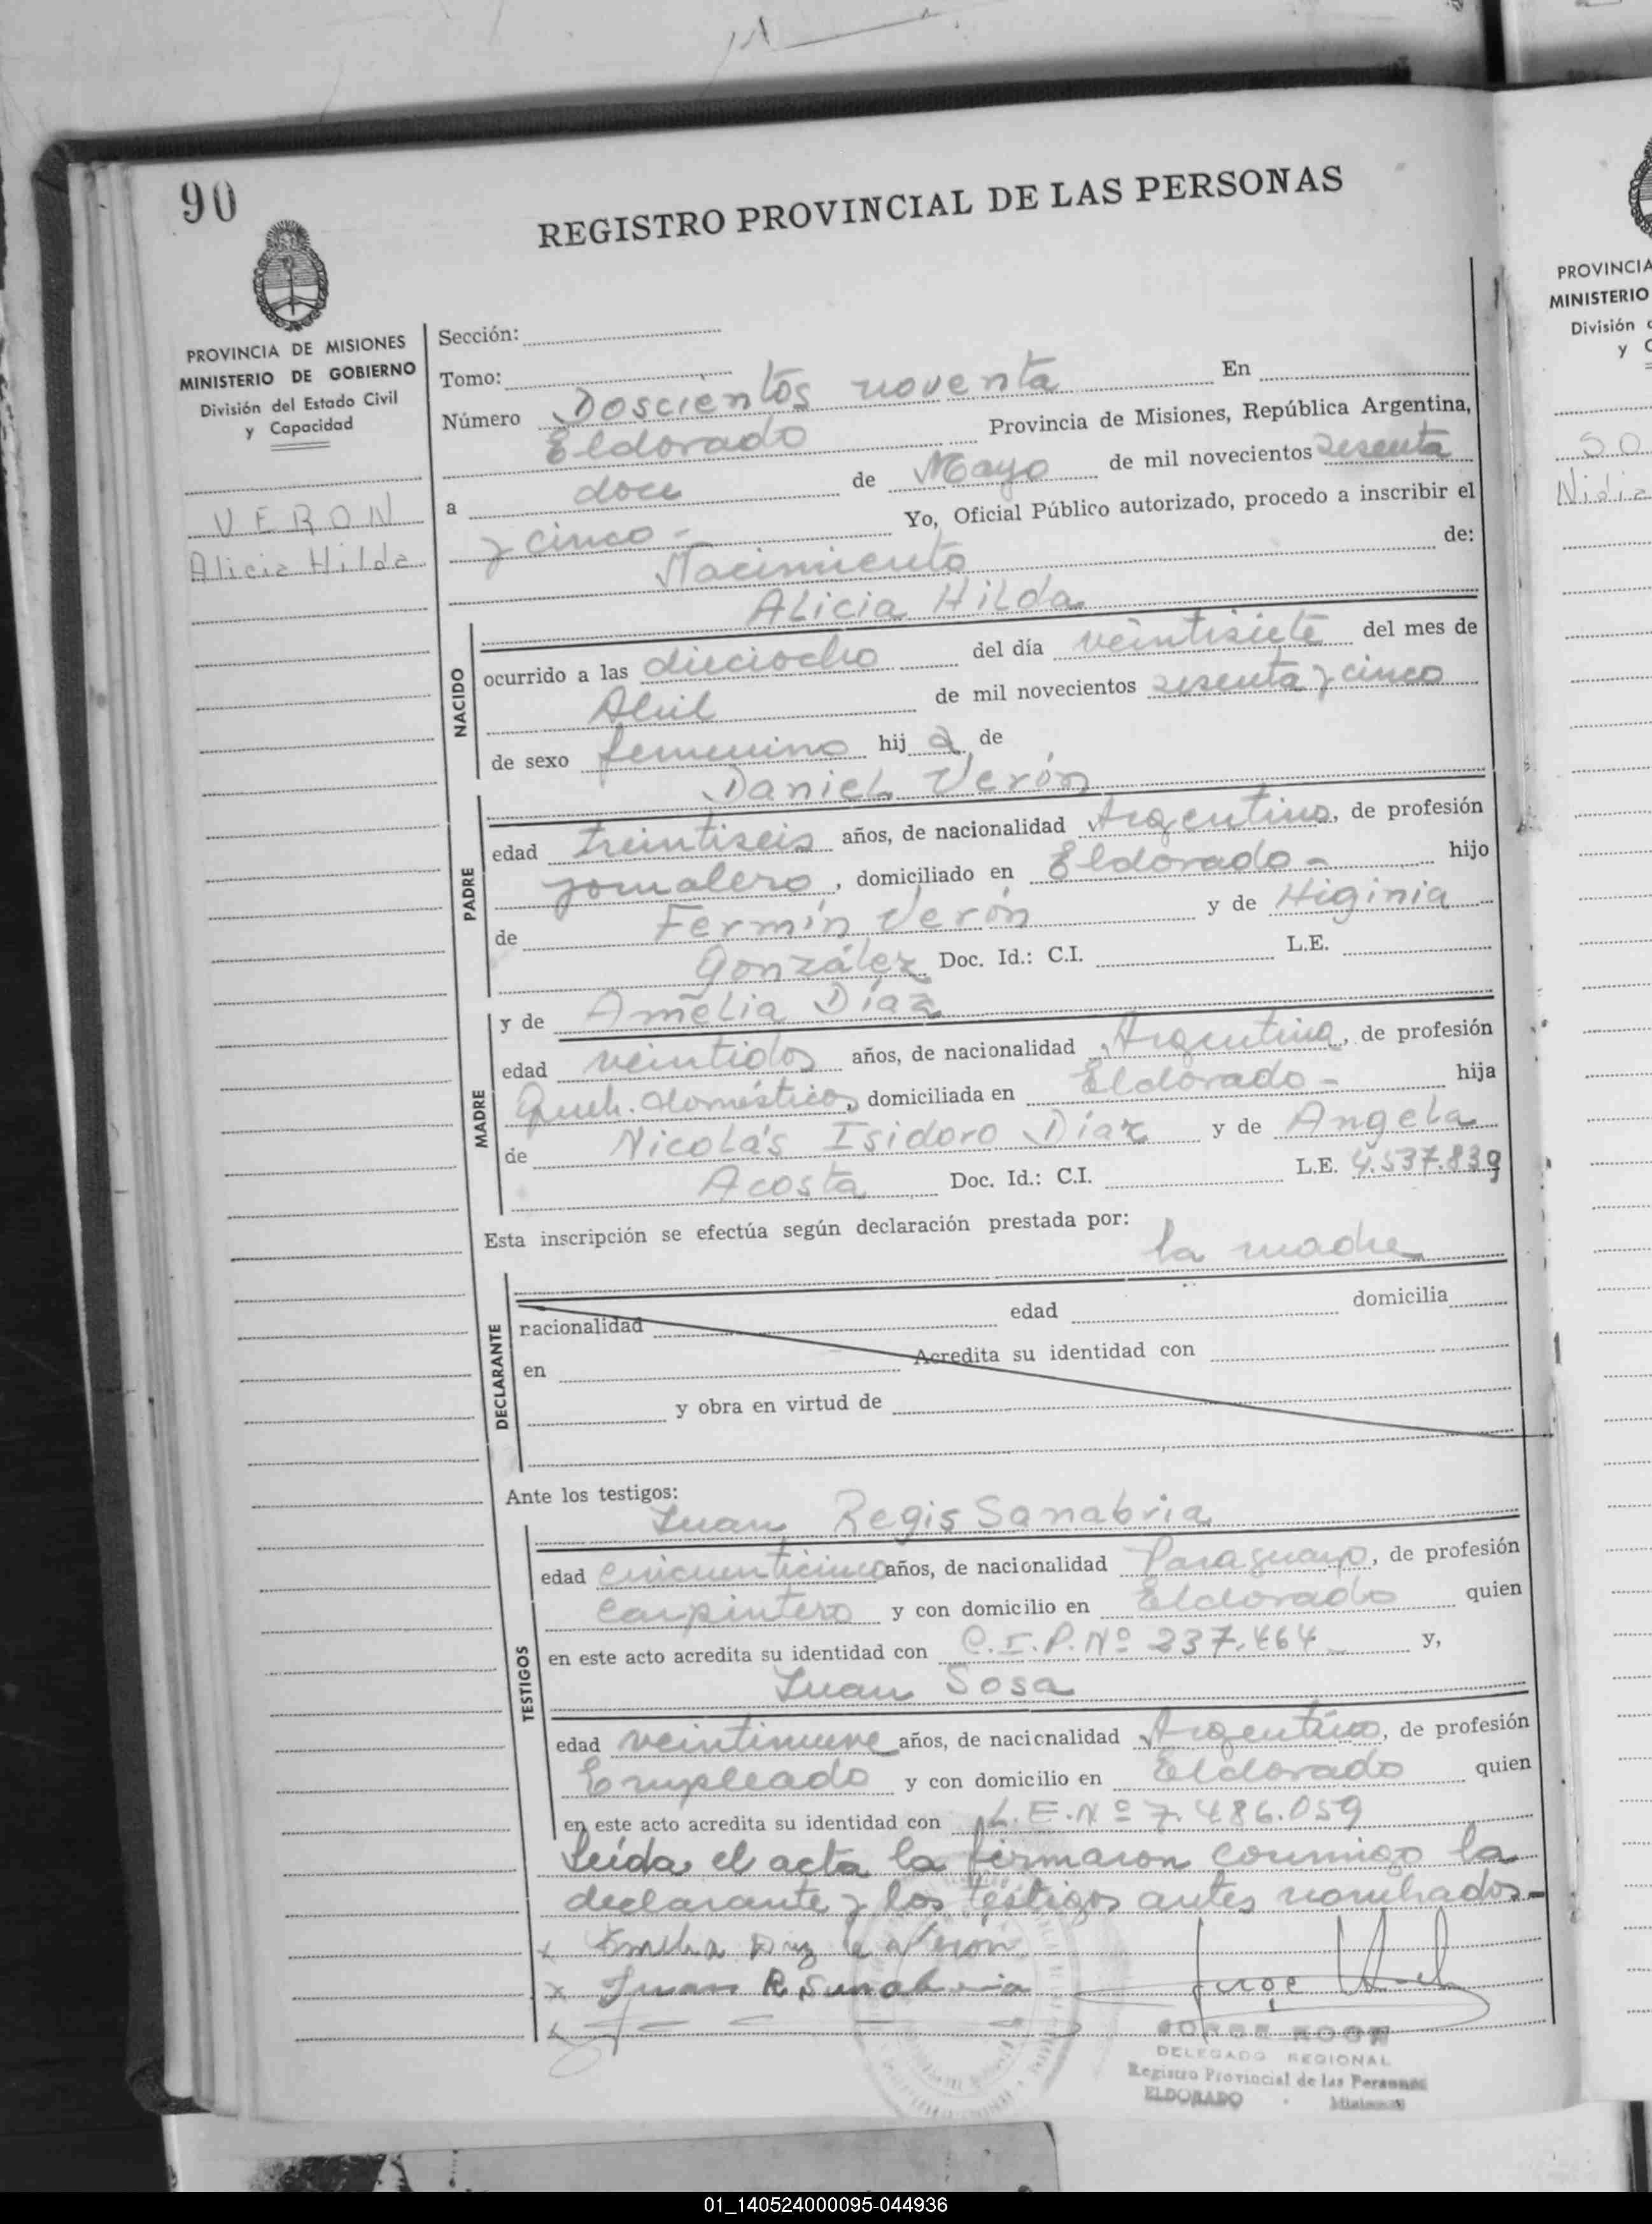 90
REGISTRO PROVINCIAL DE LAS PERSONAS
PROVINCIA DE MISIONES
MINISTERIO DE GOBIERNO
División del Estado Civil
y Capacidad
VERON
Alicia Hilda
Sección:
Tomo:
Número Doscientos noventa En
Eldorado Provincia de Misiones, República Argentina,
a doce de Mayo de mil novecientos sesenta
y cinco - Yo, Oficial Público autorizado, procedo a inscribir el
Nacimiento de:
Alicia Hilda
NACIDO
ocurrido a las dieciocho del día veintisiete del mes de
Abril de mil novecientos sesenta y cinco
de sexo femenino hij a de
Daniel Verón
PADRE
edad treintiseis años, de nacionalidad Argentino, de profesión
jornalero, domiciliado en Eldorado - hijo
de Fermín Verón y de Higinia
González Doc. Id.: C.I. L.E.
MADRE
y de Amelia Díaz
edad veintidos años, de nacionalidad Argentina, de profesión
Queh. domésticos, domiciliada en Eldorado - hija
de Nicolás Isidoro Díaz y de Angela
Acosta Doc. Id.: C.I. L.E. 4.537.839
Esta inscripción se efectúa según declaración prestada por:
la madre
DECLARANTE
nacionalidad edad domicilia
en Acredita su identidad con
y obra en virtud de
Ante los testigos:
Juan Regis Sanabria
TESTIGOS
edad cincuenticinco años, de nacionalidad Paraguayo, de profesión
Carpintero y con domicilio en Eldorado quien
en este acto acredita su identidad con C.I.P. Nº 237.464 y,
Juan Sosa
edad veintinueve años, de nacionalidad Argentino, de profesión
Empleado y con domicilio en Eldorado quien
en este acto acredita su identidad con L.E. Nº 7.486.059
Leída el acta la firmaron conmigo la
declarante y los testigos antes nombrados.-
x Díaz de Verón
x Juan R Sanabria
Jorge
JORGE
DELEGADO REGIONAL
Registro Provincial de las Personas
ELDORADO - Misiones
PROVINCIA
MINISTERIO
División
y
SO
Nidia
01_140524000095-044936